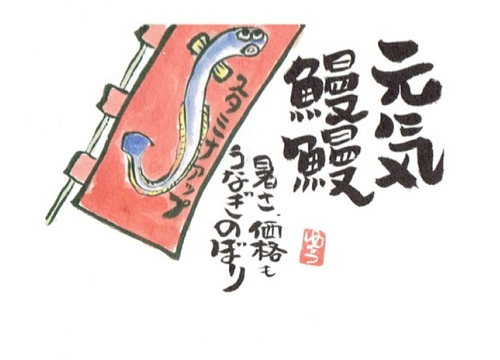 元気
鰻鰻
暑さ、価格も
うなぎのぼり
スタミナアップ